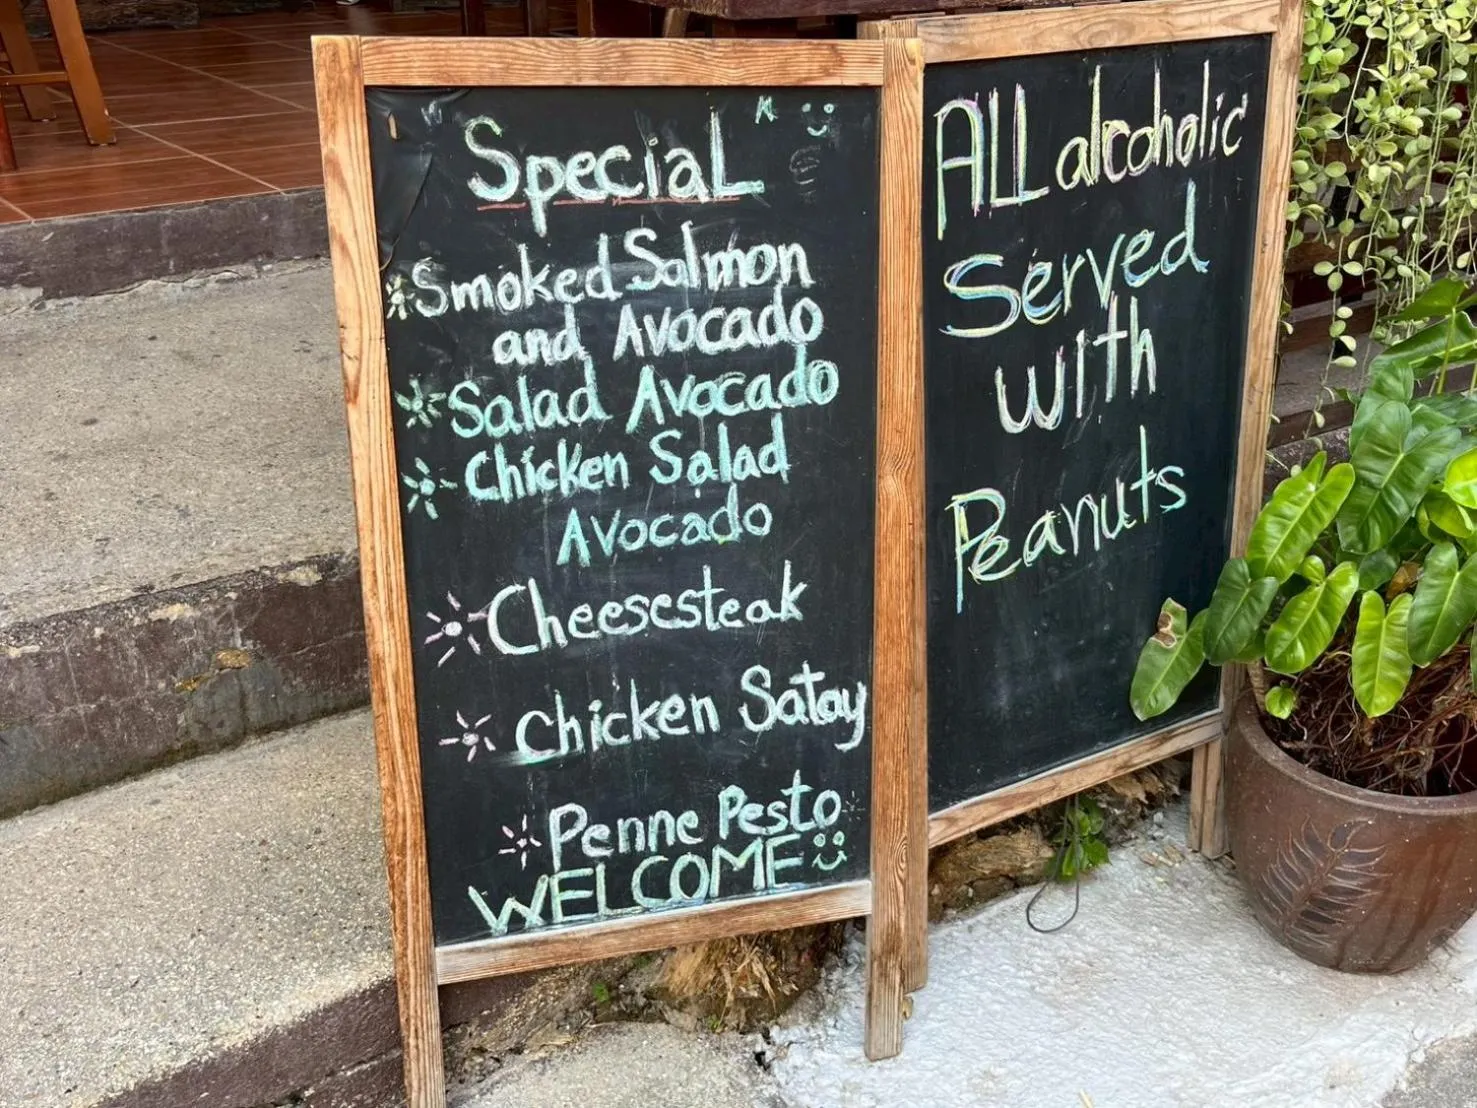 Special
Smoked Salmon
and Avocado
Salad Avocado
Chicken Salad
Avocado
Cheesesteak
Chicken Satay
Penne Pesto
WELCOME
ALL alcoholic
Served
with
Peanuts